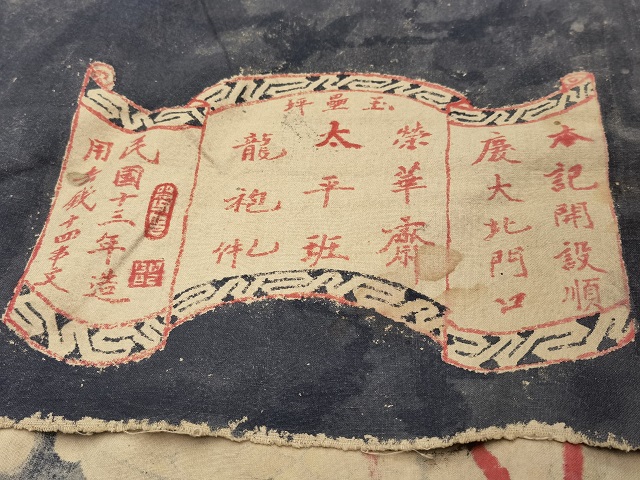 本記開設順
慶大北門口
玉壘坪
榮華齋
太平班
龍袍乙件
民國十三年造
用去錢十四文